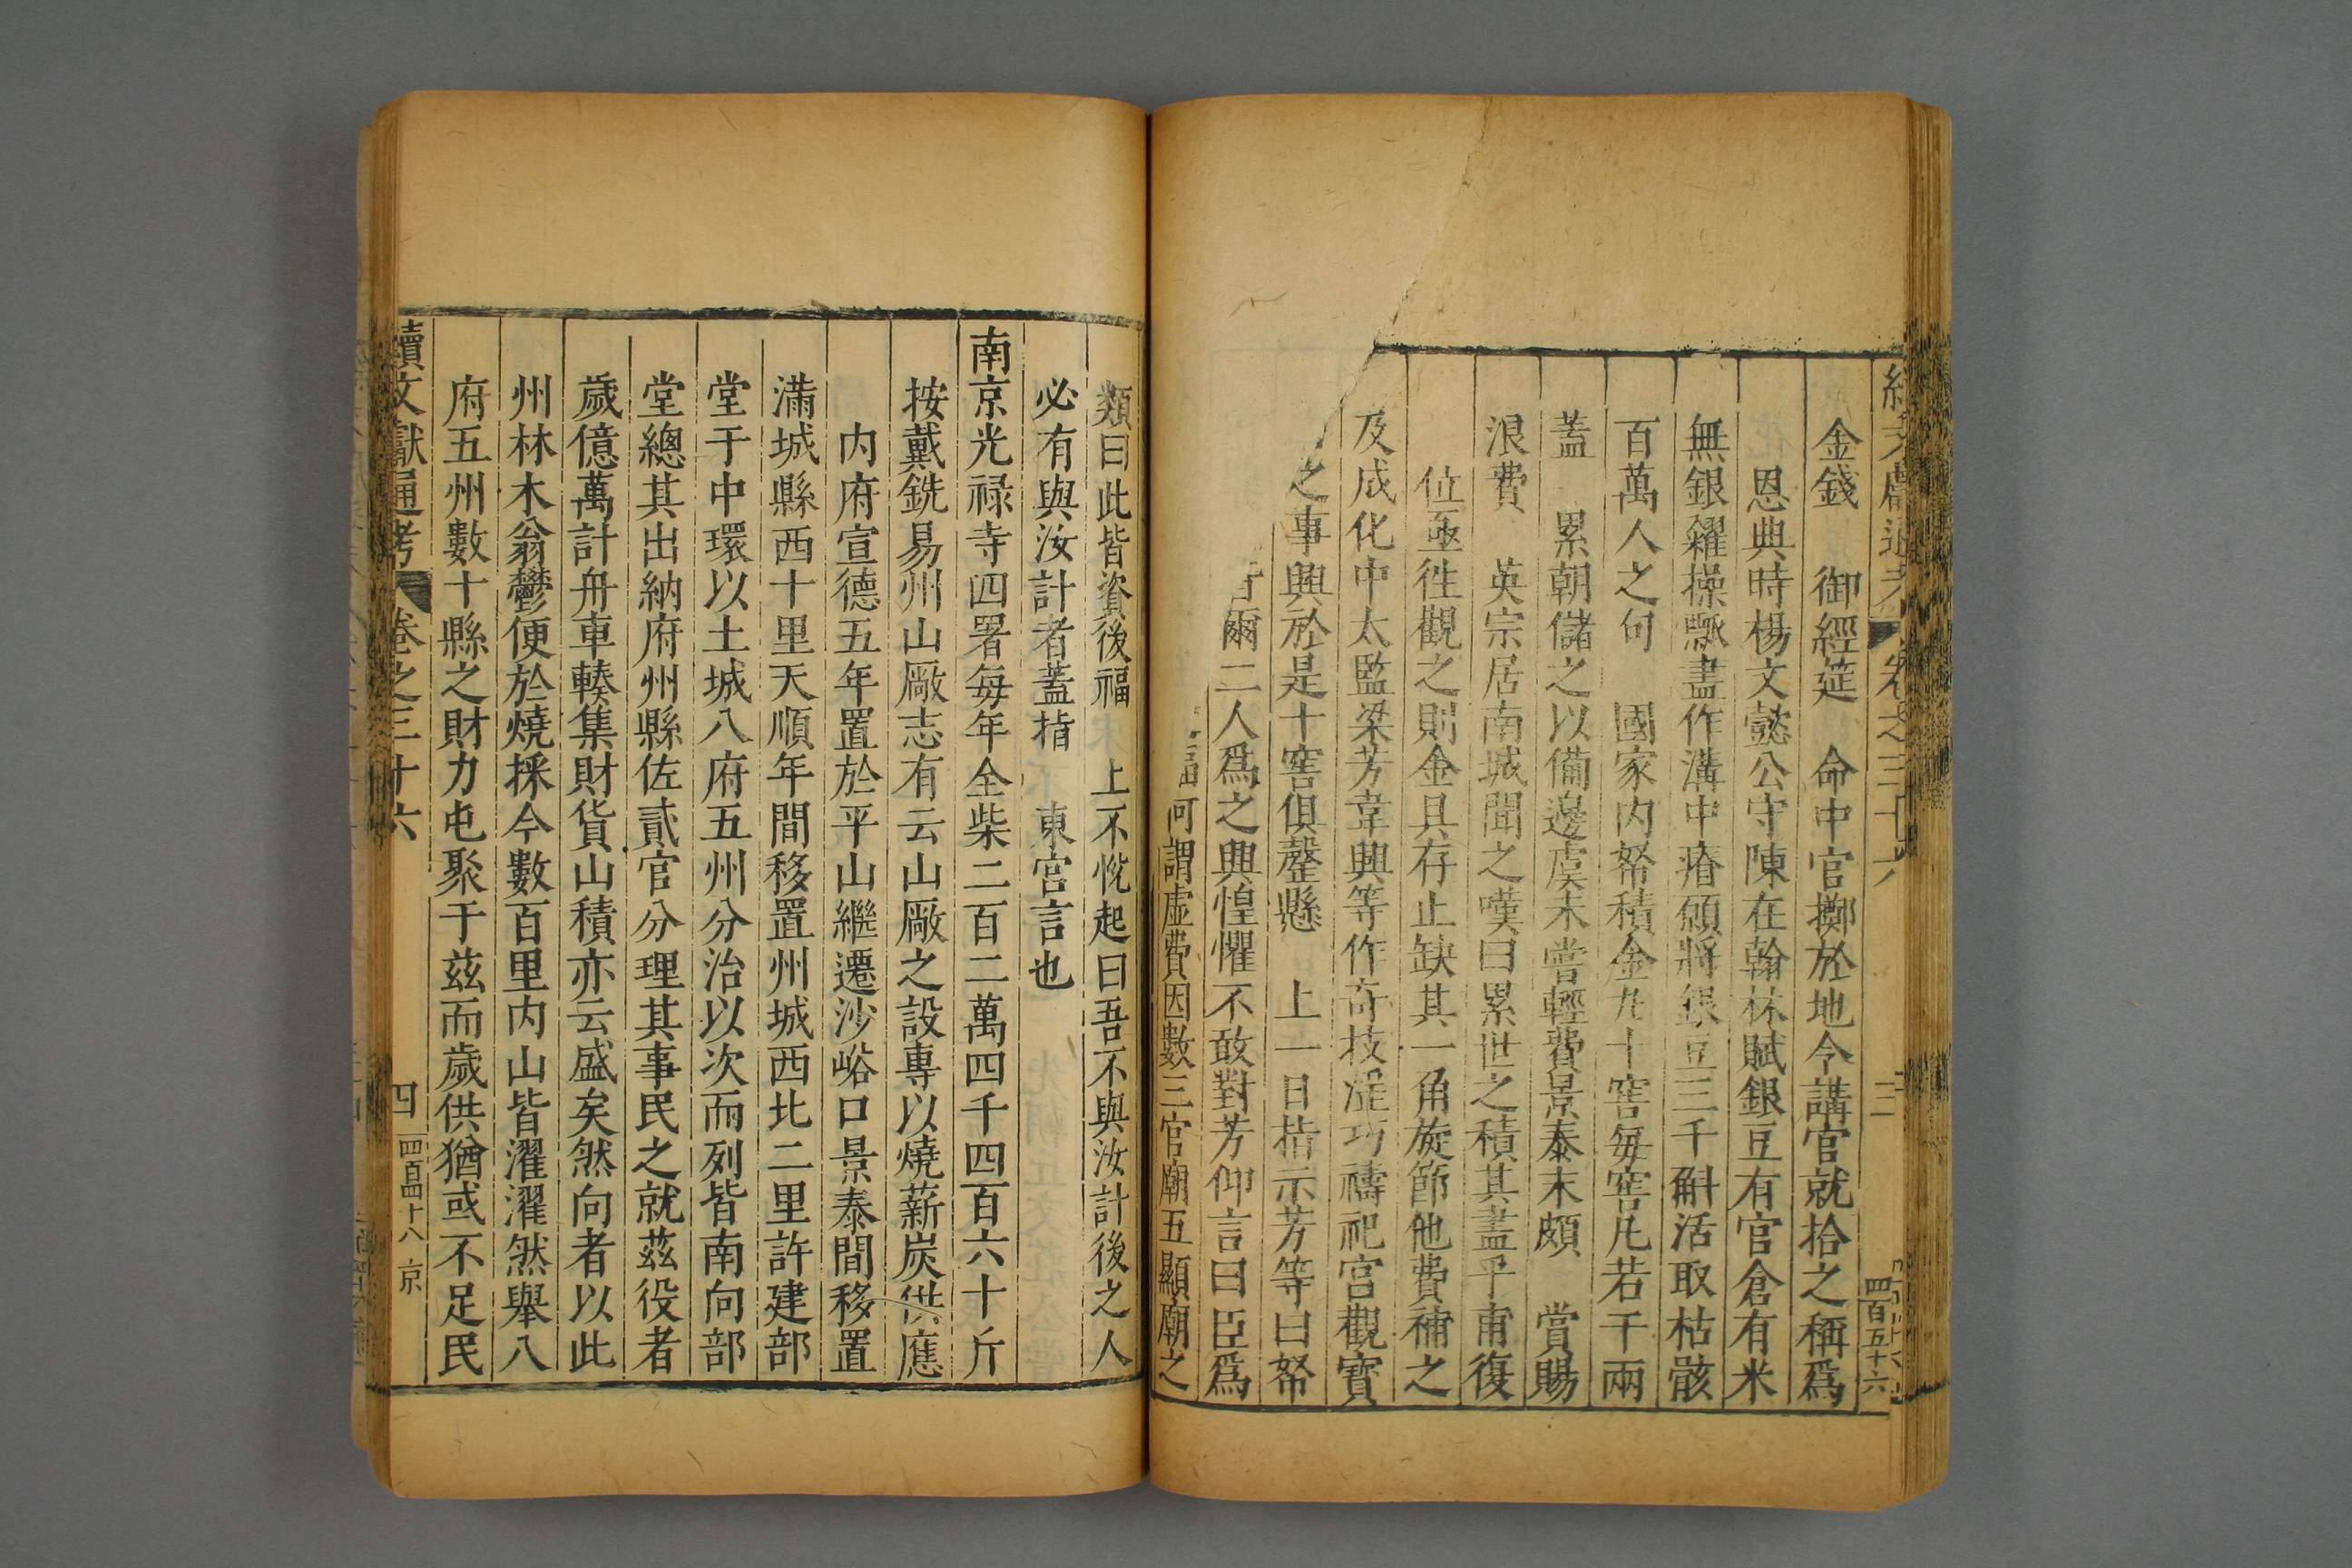 續文獻通考 卷之三十六 三 四百五十六
金錢 御經筵 命中官擲於地令講官就拾之稱爲
恩典時楊文懿公守陳在翰林賦銀豆有官倉有米
無銀糴操瓢盡作溝中瘠願將銀豆三千斛活取枯骸
百萬人之句 國家内帑積金凡十窖每窖凡若干兩
蓋 累朝儲之以備邊虞未嘗輕費景泰末頗 賞賜
浪費 英宗居南城聞之嘆曰累世之積其盡乎甫復
位亟徃觀之則金具存止缺其一角旋節他費補之
及成化中太監梁芳韋興等作奇技淫巧禱祀宫觀寳
之事興於是十窖俱罄懸 上一日指示芳等曰帑
爾二人爲之興惶懼不敢對芳仰言曰臣爲
何謂虛費因數三官廟五顯廟之
類曰此皆資後福 上不悅起曰吾不與汝計後之人
必有與汝計者蓋指 東宫言也
南京光禄寺四署每年全柴二百二萬四千四百六十斤
按戴銑易州山廠志有云山廠之設專以燒薪炭供應
内府宣德五年置於平山繼遷沙峪口景泰間移置
滿城縣西十里天順年間移置州城西北二里許建部
堂于中環以土城八府五州分治以次而列皆南向部
堂總其出納府州縣佐貳官分理其事民之就茲役者
歲億萬計舟車輳集財貨山積亦云盛矣然向者以此
州林木蓊鬱便於燒採今數百里内山皆濯濯然舉八
府五州數十縣之財力屯聚于茲而歲供猶或不足民
續文獻通考 卷之三十六 四 四百四十八 京